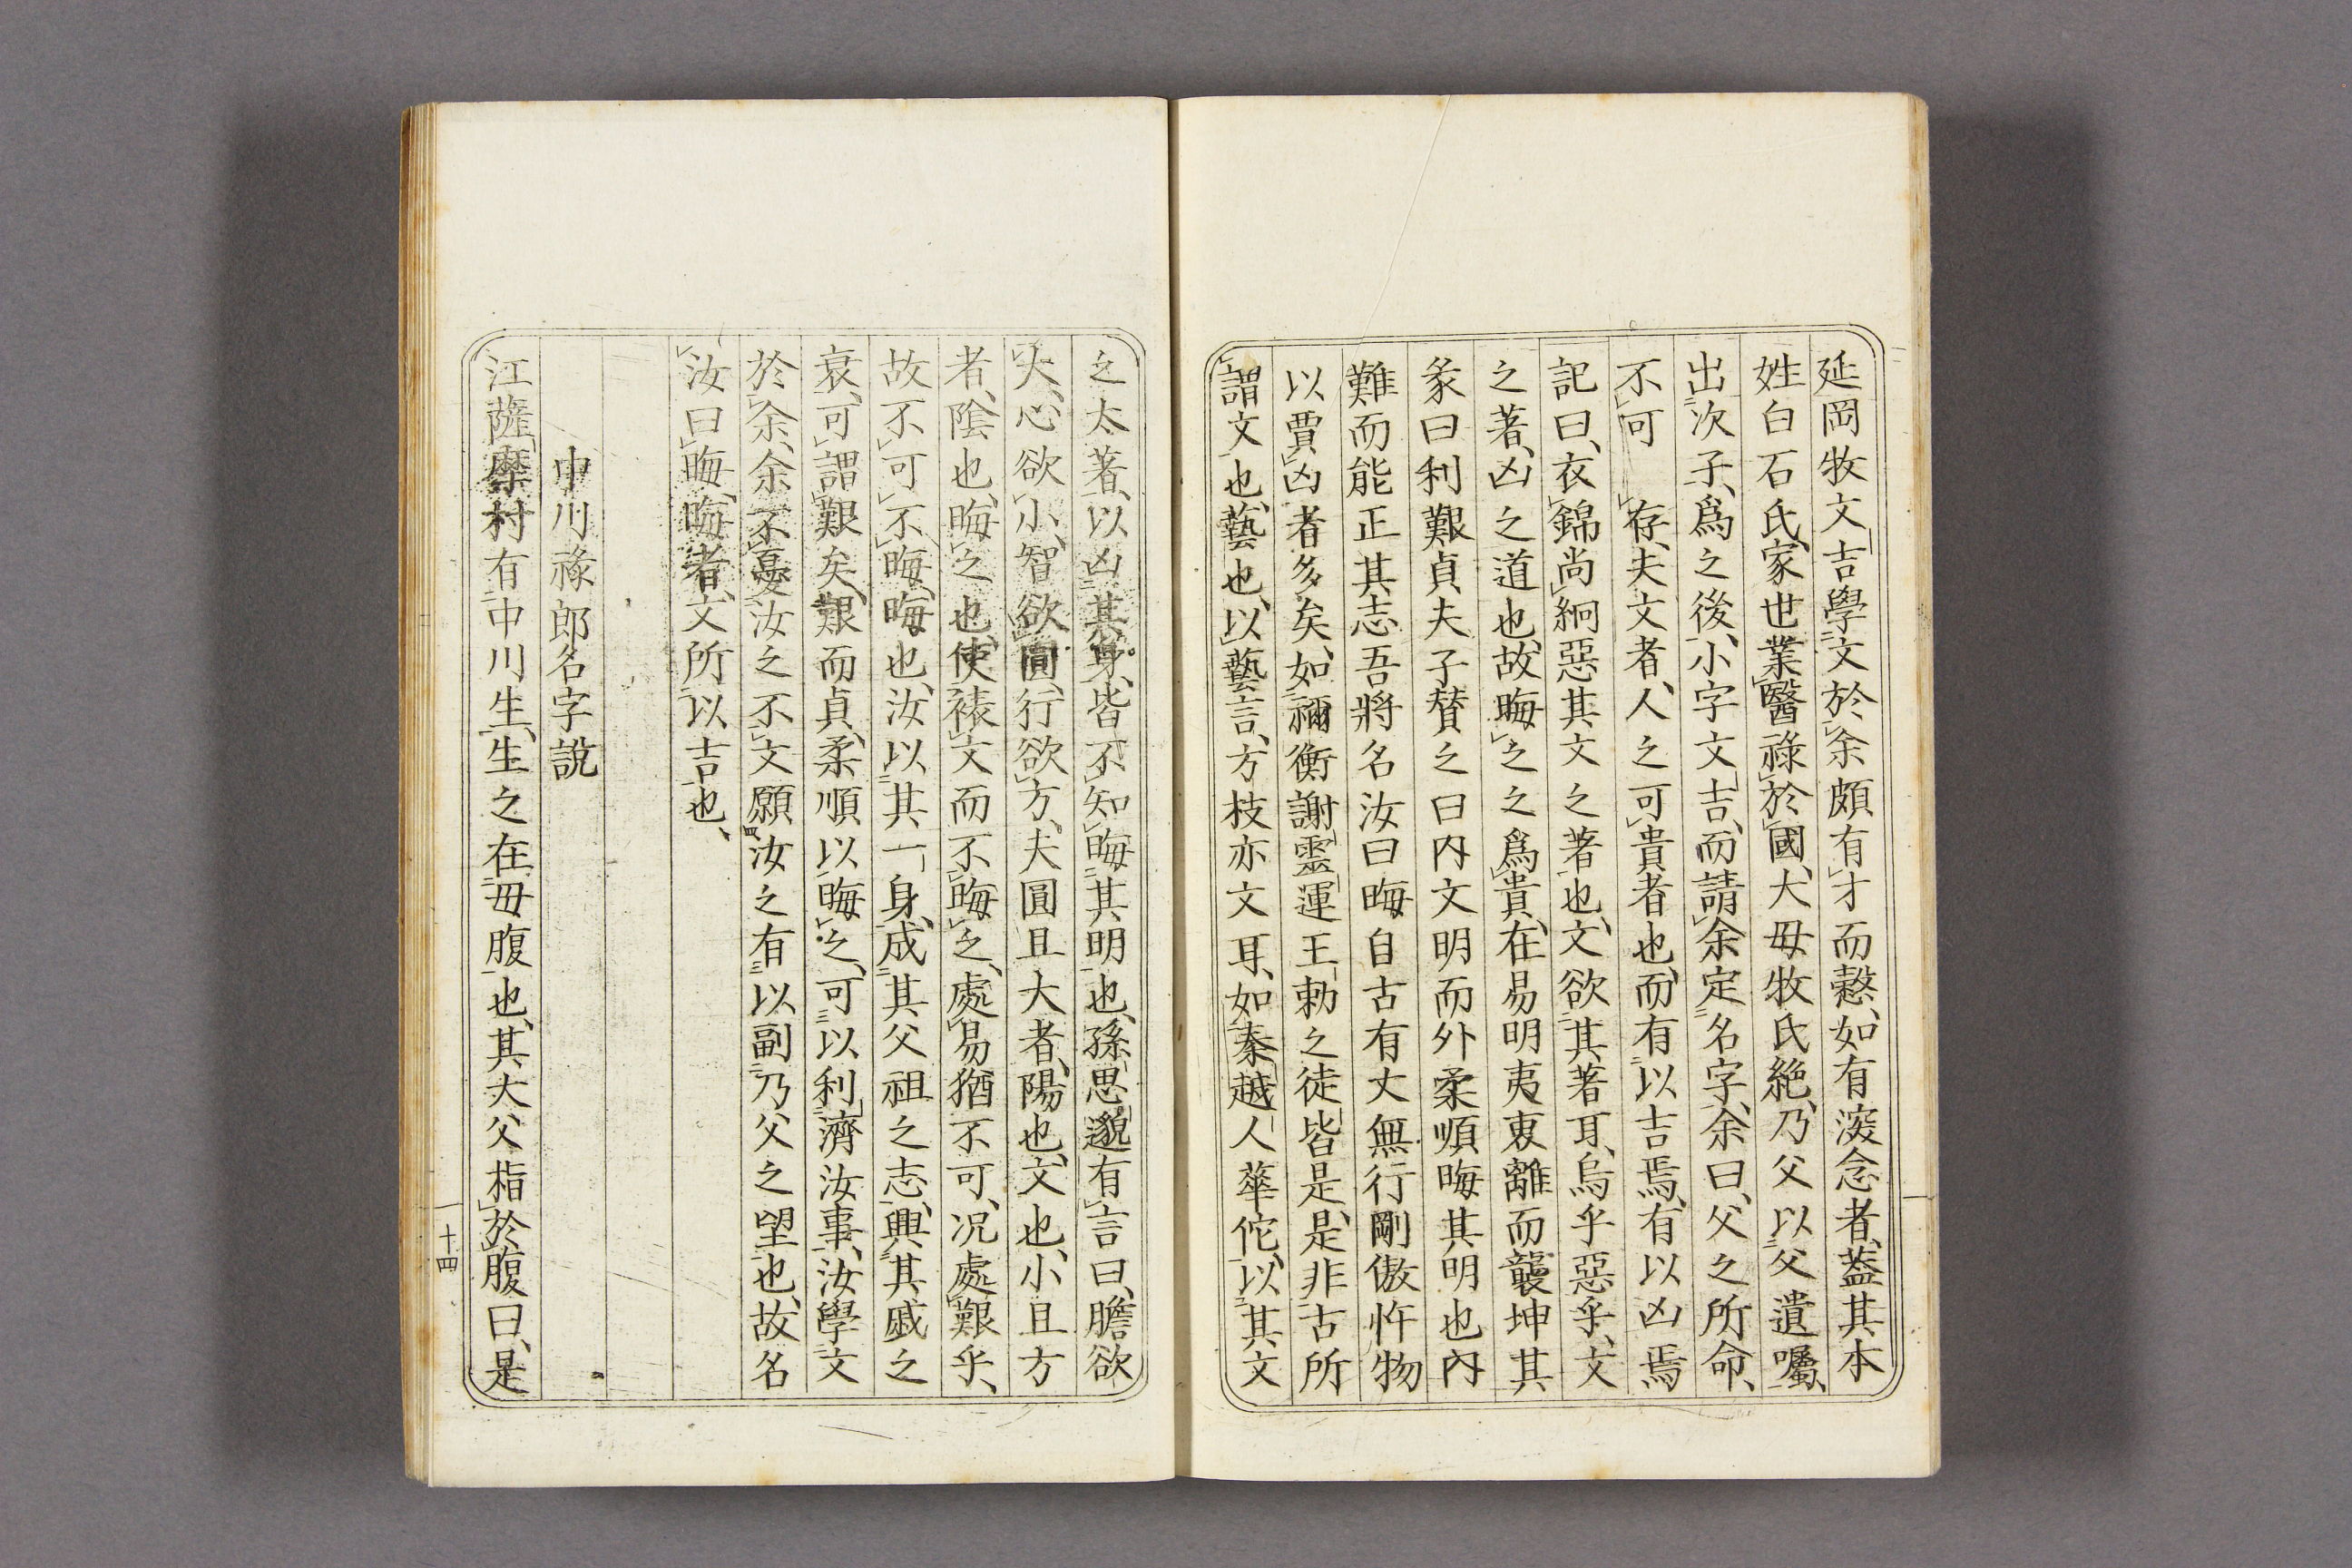 延岡牧文吉學文於余頗有才而慤、如有深念者、蓋其本
姓白石氏、家世業醫祿於國、大毋牧氏絶、乃父以父遺囑、
出次子、爲之後、小字文吉、而請余定名字、余曰、父之所命、
不可 存、夫文者、人之可貴者也、而有以吉焉、有以凶焉
記曰、衣錦尚絅惡其文之著也、文欲其著耳、烏乎惡乎、文
之著、凶之道也、故晦之之爲貴、在易明夷東離而襲坤其
彖曰利艱貞夫子賛之曰内文明而外柔順晦其明也内
難而能正其志吾將名汝曰晦自古有文無行剛傲忤物
以賈凶者多矣、如禰衡謝靈運王勃之徒皆是、是非古所
謂文也、藝也、以藝言、方枝亦文耳、如秦越人華佗、以其文
之太著、以凶其身、皆不知晦其明也、孫思邈有言曰、膽欲
大、心欲小、智欲圓、行欲方、夫圓且大者、陽也、文也、小且方
者、陰也、晦之也、使裱文而不晦之、處易猶不可、况處艱乎、
故不可不晦、晦也、汝以其一身、成其父祖之志、興其戚之
衰、可謂艱矣、艱而貞、柔順以晦之、可以利濟汝事、汝學文
於余、余不憂汝之不文願汝之有以副乃父之望也、故名
汝曰晦、晦者、文所以吉也、
中川祿郎名字說
江薩摩村有中川生、生之在毋腹也、其大父指於腹曰、是
十四